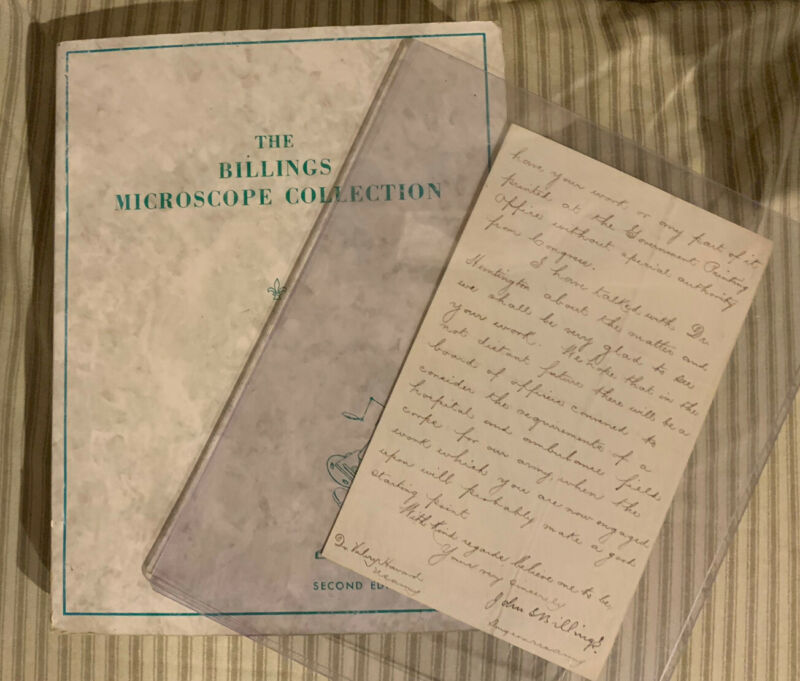 THE
BILLINGS
MICROSCOPE COLLECTION
SECOND ED
have your work, or any part of it,
printed at the Government Printing
Office without special authority
from Congress.
I have talked with Dr.
Huntington about the matter and
we shall be very glad to see
your work. We hope that in the
not distant future there will be a
board of officers convened to
consider the requirements of a
hospital and ambulance field
corps for our army, when the
work which you are now engaged
upon will probably make a good
starting point
With kind regards believe me to be,
Yours very sincerely
John S Billings.
Surgeon
Dr Valery Havard
U S Army